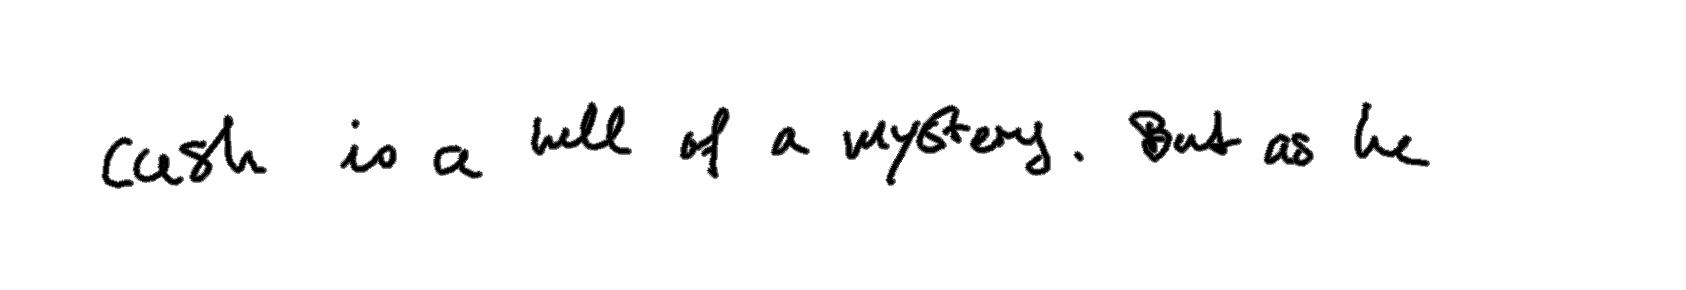 cash is a hell of a mystery. But as he